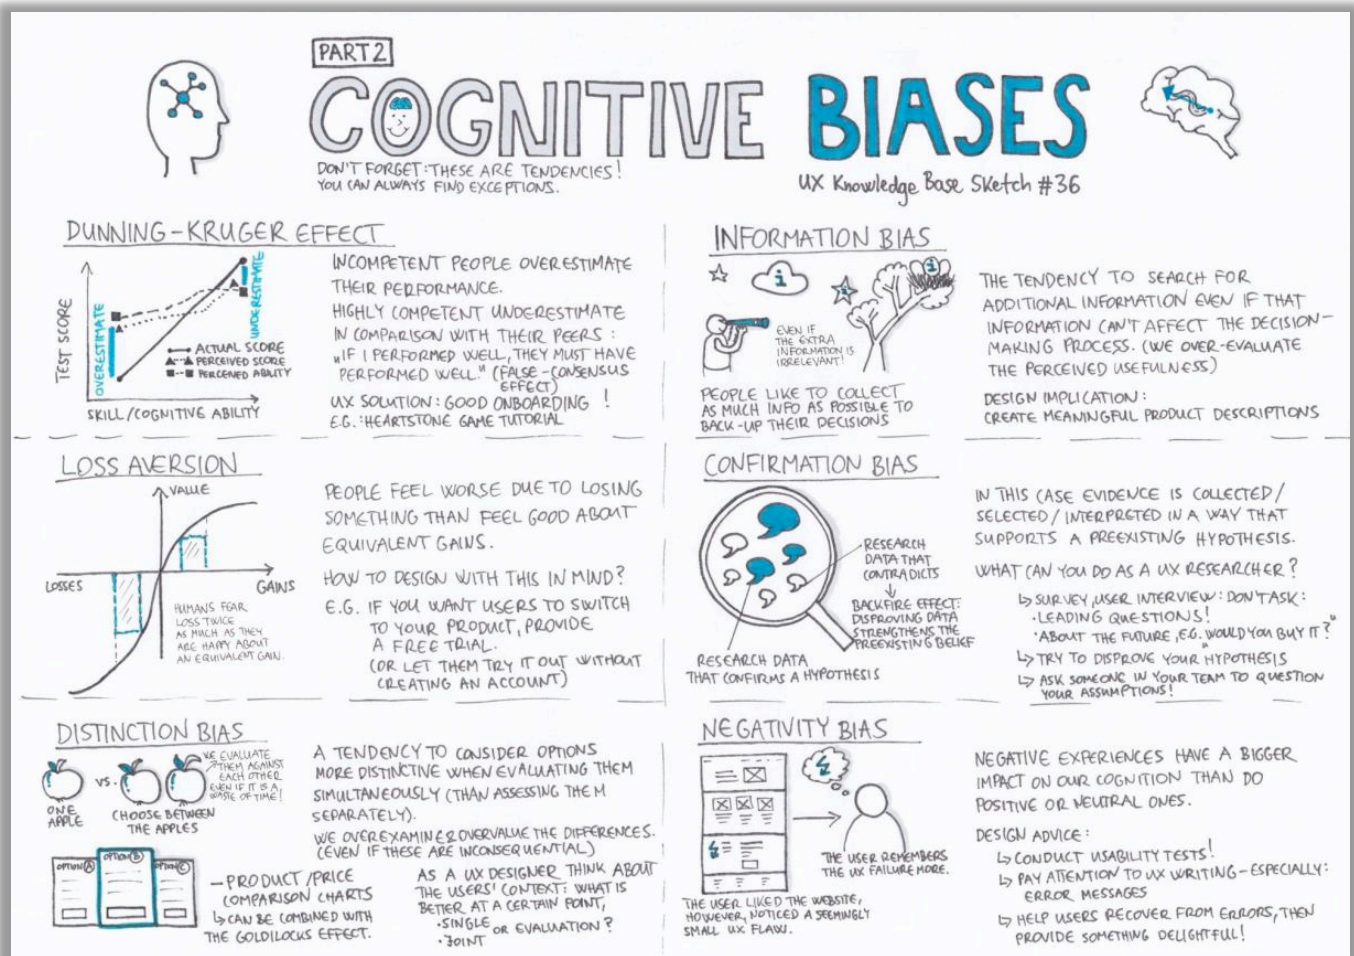 PART 2
COGNITIVE BIASES
DON'T FORGET: THESE ARE TENDENCIES!
YOU CAN ALWAYS FIND EXCEPTIONS.
UX Knowledge Base Sketch #36
DUNNING-KRUGER EFFECT
TEST SCORE
OVERESTIMATE
UNDERESTIMATE
ACTUAL SCORE
PERCEIVED SCORE
PERCEIVED ABILITY
SKILL/COGNITIVE ABILITY
INCOMPETENT PEOPLE OVERESTIMATE
THEIR PERFORMANCE.
HIGHLY COMPETENT UNDERESTIMATE
IN COMPARISON WITH THEIR PEERS:
„IF I PERFORMED WELL, THEY MUST HAVE
PERFORMED WELL." (FALSE-CONSENSUS
EFFECT)
UX SOLUTION: GOOD ONBOARDING !
E.G.: HEARTSTONE GAME TUTORIAL
INFORMATION BIAS
i
i
EVEN IF
THE EXTRA
INFORMATION IS
IRRELEVANT!
PEOPLE LIKE TO COLLECT
AS MUCH INFO AS POSSIBLE TO
BACK-UP THEIR DECISIONS
THE TENDENCY TO SEARCH FOR
ADDITIONAL INFORMATION EVEN IF THAT
INFORMATION CAN'T AFFECT THE DECISION-
MAKING PROCESS. (WE OVER-EVALUATE
THE PERCEIVED USEFULNESS)
DESIGN IMPLICATION:
CREATE MEANINGFUL PRODUCT DESCRIPTIONS
LOSS AVERSION
VALUE
LOSSES
GAINS
HUMANS FEAR
LOSS TWICE
AS MUCH AS THEY
ARE HAPPY ABOUT
AN EQUIVALENT GAIN.
PEOPLE FEEL WORSE DUE TO LOSING
SOMETHING THAN FEEL GOOD ABOUT
EQUIVALENT GAINS.
HOW TO DESIGN WITH THIS IN MIND?
E.G. IF YOU WANT USERS TO SWITCH
TO YOUR PRODUCT, PROVIDE
A FREE TRIAL.
(OR LET THEM TRY IT OUT WITHOUT
CREATING AN ACCOUNT)
CONFIRMATION BIAS
RESEARCH
DATA THAT
CONTRADICTS
BACKFIRE EFFECT:
DISPROVING DATA
STRENGTHENS THE
PREEXISTING BELIEF
RESEARCH DATA
THAT CONFIRMS A HYPOTHESIS
IN THIS CASE EVIDENCE IS COLLECTED/
SELECTED/INTERPRETED IN A WAY THAT
SUPPORTS A PREEXISTING HYPOTHESIS.
WHAT CAN YOU DO AS A UX RESEARCHER?
↳ SURVEY, USER INTERVIEW: DON'T ASK:
· LEADING QUESTIONS!
· ABOUT THE FUTURE, E.G. „WOULD YOU BUY IT?"
↳ TRY TO DISPROVE YOUR HYPOTHESIS
↳ ASK SOMEONE IN YOUR TEAM TO QUESTION
YOUR ASSUMPTIONS!
DISTINCTION BIAS
VS.
WE EVALUATE
THEM AGAINST
EACH OTHER
EVEN IF IT IS A
WASTE OF TIME!
ONE
APPLE
CHOOSE BETWEEN
THE APPLES
OPTION A
OPTION B
OPTION C
– PRODUCT/PRICE
COMPARISON CHARTS
↳ CAN BE COMBINED WITH
THE GOLDILOCKS EFFECT.
A TENDENCY TO CONSIDER OPTIONS
MORE DISTINCTIVE WHEN EVALUATING THEM
SIMULTANEOUSLY (THAN ASSESSING THEM
SEPARATELY).
WE OVEREXAMINE & OVERVALUE THE DIFFERENCES.
(EVEN IF THESE ARE INCONSEQUENTIAL)
AS A UX DESIGNER THINK ABOUT
THE USERS' CONTEXT: WHAT IS
BETTER AT A CERTAIN POINT,
· SINGLE OR EVALUATION?
· JOINT
NEGATIVITY BIAS
THE USER REMEMBERS
THE UX FAILURE MORE.
THE USER LIKED THE WEBSITE,
HOWEVER, NOTICED A SEEMINGLY
SMALL UX FLAW.
NEGATIVE EXPERIENCES HAVE A BIGGER
IMPACT ON OUR COGNITION THAN DO
POSITIVE OR NEUTRAL ONES.
DESIGN ADVICE:
↳ CONDUCT USABILITY TESTS!
↳ PAY ATTENTION TO UX WRITING – ESPECIALLY:
ERROR MESSAGES
↳ HELP USERS RECOVER FROM ERRORS, THEN
PROVIDE SOMETHING DELIGHTFUL!